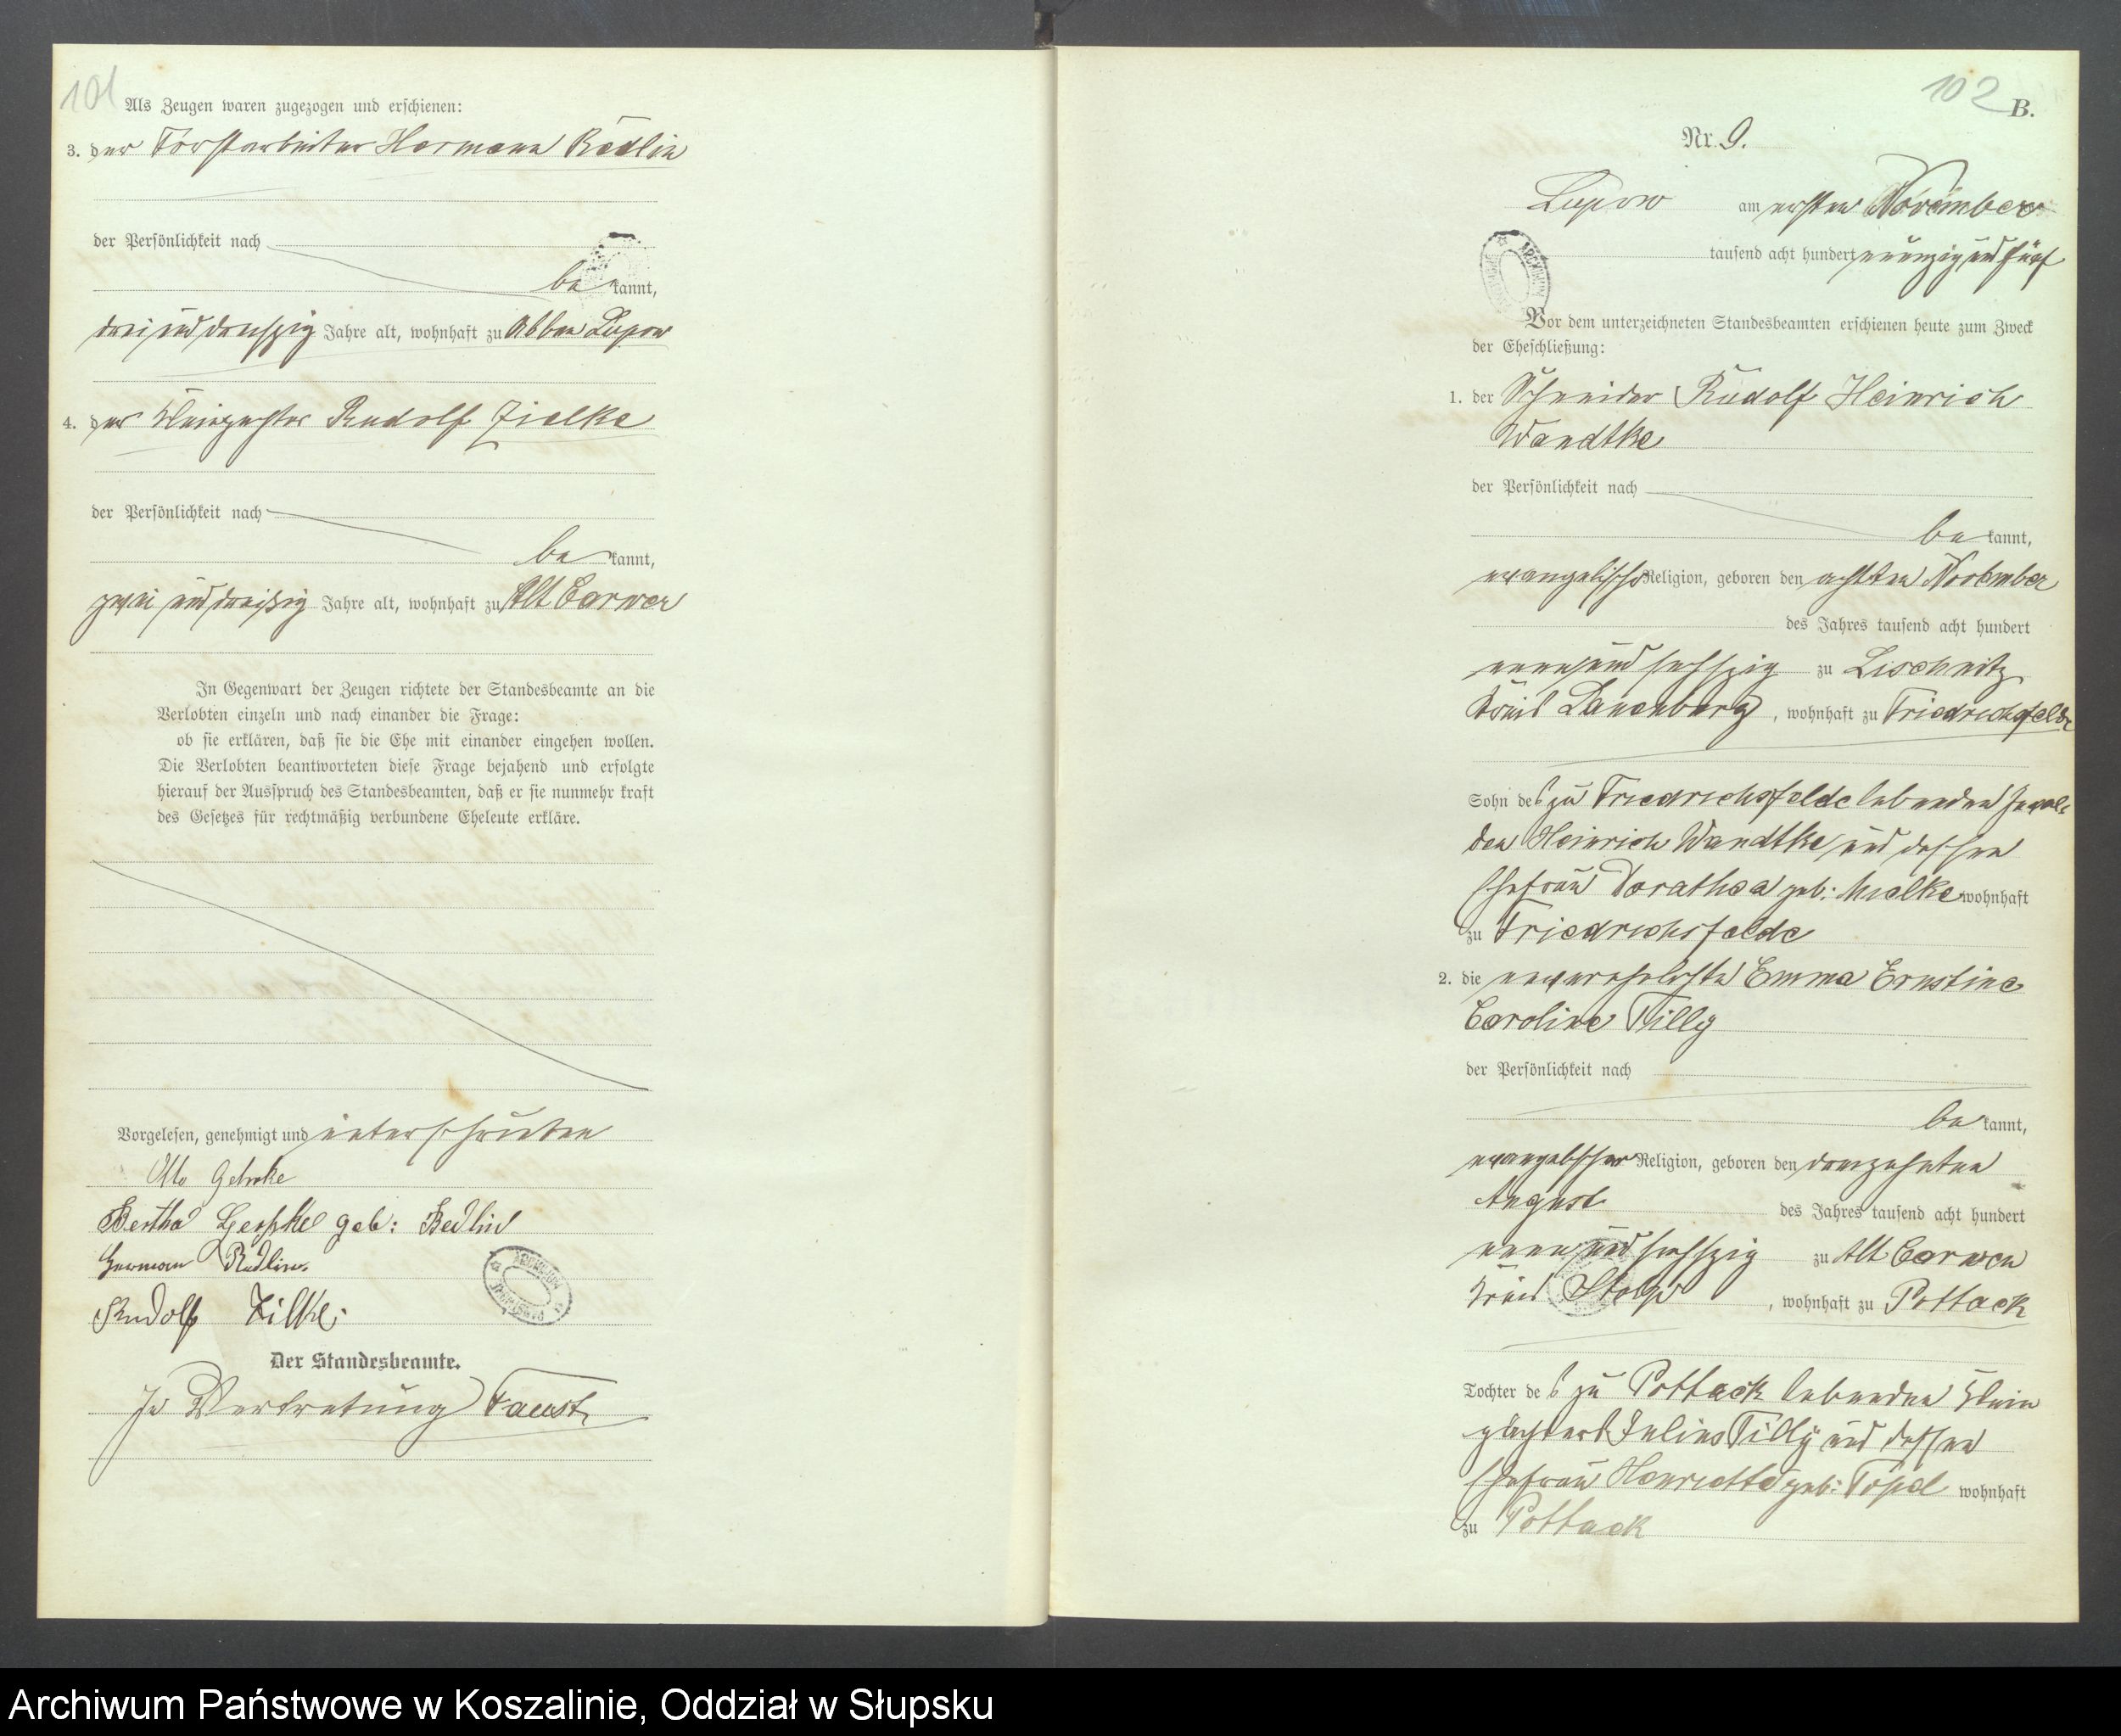 101
Als Zeugen waren zugezogen und erschienen:
3. der Forstarbeiter Hermann Redlin
der Persönlichkeit nach
bekannt,
drei und dreißig Jahre alt, wohnhaft zu Abbau Lupow
4. der Kleinpächter Rudolf Zielke
der Persönlichkeit nach
bekannt,
zwei und dreißig Jahre alt, wohnhaft zu Alt Carwen
In Gegenwart der Zeugen richtete der Standesbeamte an die
Verlobten einzeln und nach einander die Frage:
ob sie erklären, daß sie die Ehe mit einander eingehen wollen.
Die Verlobten beantworteten diese Frage bejahend und erfolgte
hierauf der Ausspruch des Standesbeamten, daß er sie nunmehr kraft
des Gesetzes für rechtmäßig verbundene Eheleute erkläre.
Vorgelesen, genehmigt und unterschrieben
Otto
Bertha geb: Redlin
Herman Redlin.
Rudolf Zilke.
Der Standesbeamte.
In Vertretung Faust
102
B.
Nr. 9.
Lupow am ersten November
tausend acht hundert neunzig und fünf
Vor dem unterzeichneten Standesbeamten erschienen heute zum Zweck
der Eheschließung:
1. der Schneider Rudolf Heinrich
Wandtke
der Persönlichkeit nach
bekannt,
evangelischer Religion, geboren den achten November
des Jahres tausend acht hundert
neun und sechszig zu Lischnitz
Kreis Lauenburg, wohnhaft zu Friedrichsfelde
Sohn des zu Friedrichsfelde lebenden Invali-
den Heinrich Wandtke und dessen
Ehefrau Dorathea geb: Mielke wohnhaft
zu Friedrichsfelde
2. die unverehelichte Emma Ernstine
Caroline Tilly
der Persönlichkeit nach
bekannt,
evangelischer Religion, geboren den dreizehnten
August des Jahres tausend acht hundert
neun und sechszig zu Alt Carwen
Kreis Stolp, wohnhaft zu Pottack
Tochter des zu Pottack lebenden Klein
pächters Julius Tilly und dessen
Ehefrau Henriette geb: wohnhaft
zu Pottack
Archiwum Państwowe w Koszalinie, Oddział w Słupsku